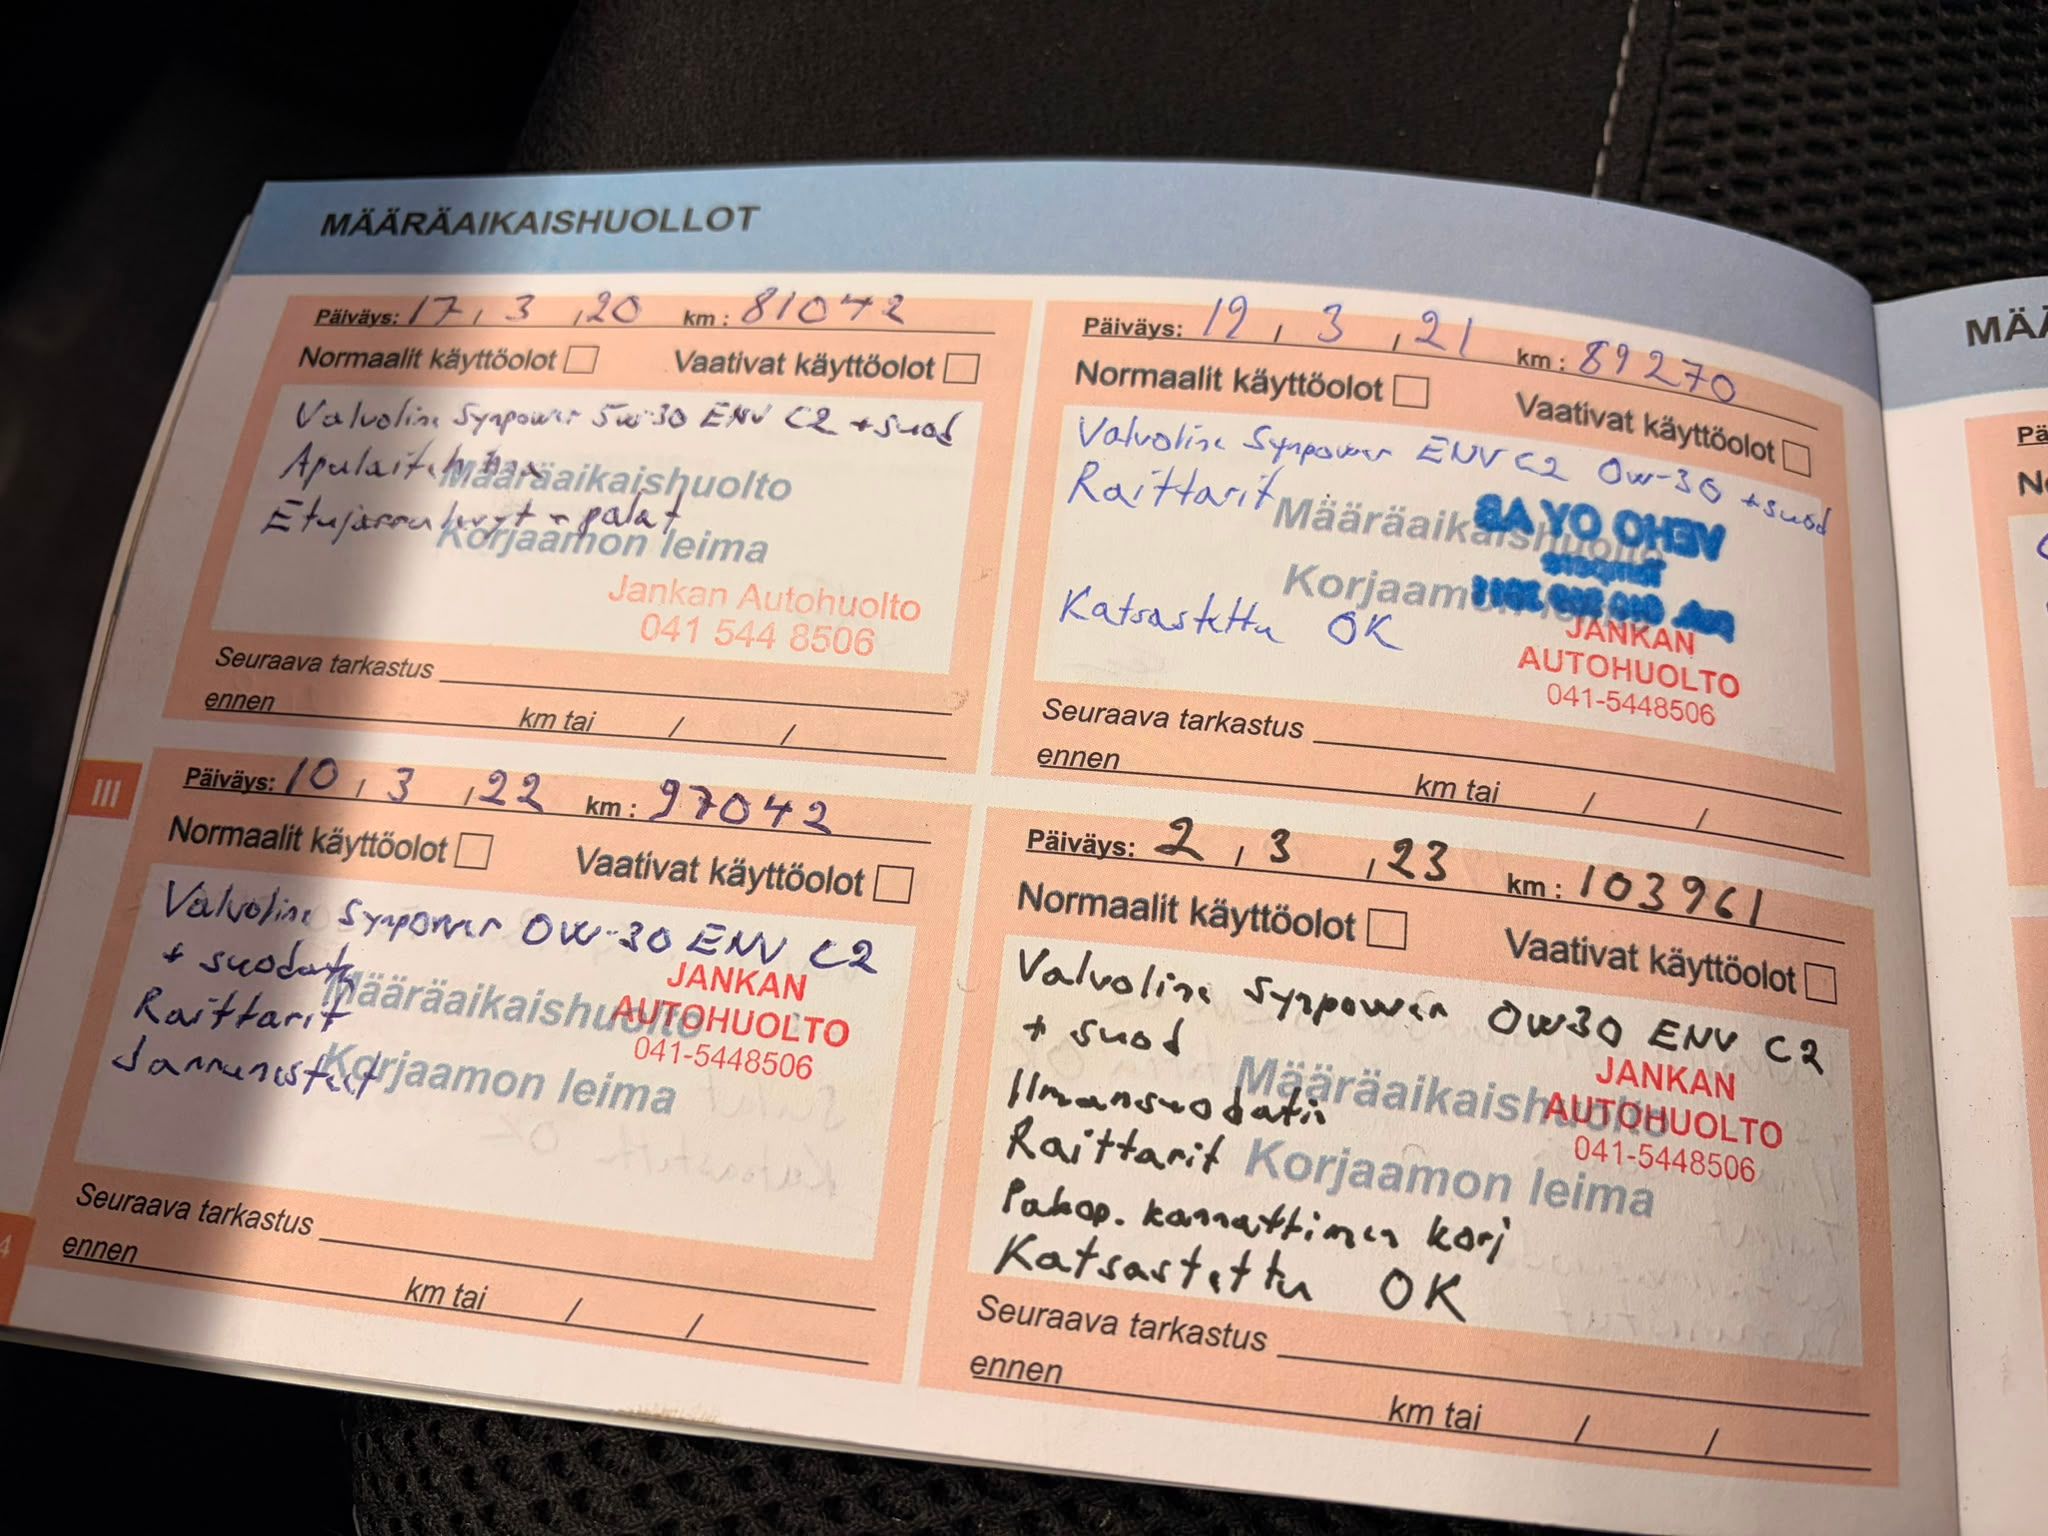 MÄÄRÄAIKAISHUOLLOT
Päiväys: 17, 3 ,20 km : 81042
Normaalit käyttöolot Vaativat käyttöolot
Valvoline Synpower 5w-30 ENV C2 + suod
Määräaikaishuolto
Korjaamon leima
Jankan Autohuolto
041 544 8506
Seuraava tarkastus
ennen km tai / /
Päiväys: 19, 3 ,21 km : 89270
Normaalit käyttöolot Vaativat käyttöolot
Valvoline Synpower ENV C2 0w-30 + suod
Raittarit
Korjaamon
VEHO OY AB
Katsastettu OK
JANKAN
AUTOHUOLTO
041-5448506
Seuraava tarkastus
ennen km tai / /
III
Päiväys: 10, 3 ,22 km : 97042
Normaalit käyttöolot Vaativat käyttöolot
Valvoline Synpower 0W-30 ENV C2
+ suodatin
Raittarit
Määräaikaishuolto
Korjaamon leima
JANKAN
AUTOHUOLTO
041-5448506
Seuraava tarkastus
ennen km tai / /
4
Päiväys: 2, 3 ,23 km : 103961
Normaalit käyttöolot Vaativat käyttöolot
Valvoline Synpower 0W30 ENV C2
+ suod
Ilmansuodatin
Raittarit
Pakop. kannattimen korj
Katsastettu OK
Määräaikaishuolto
Korjaamon leima
JANKAN
AUTOHUOLTO
041-5448506
Seuraava tarkastus
ennen km tai / /